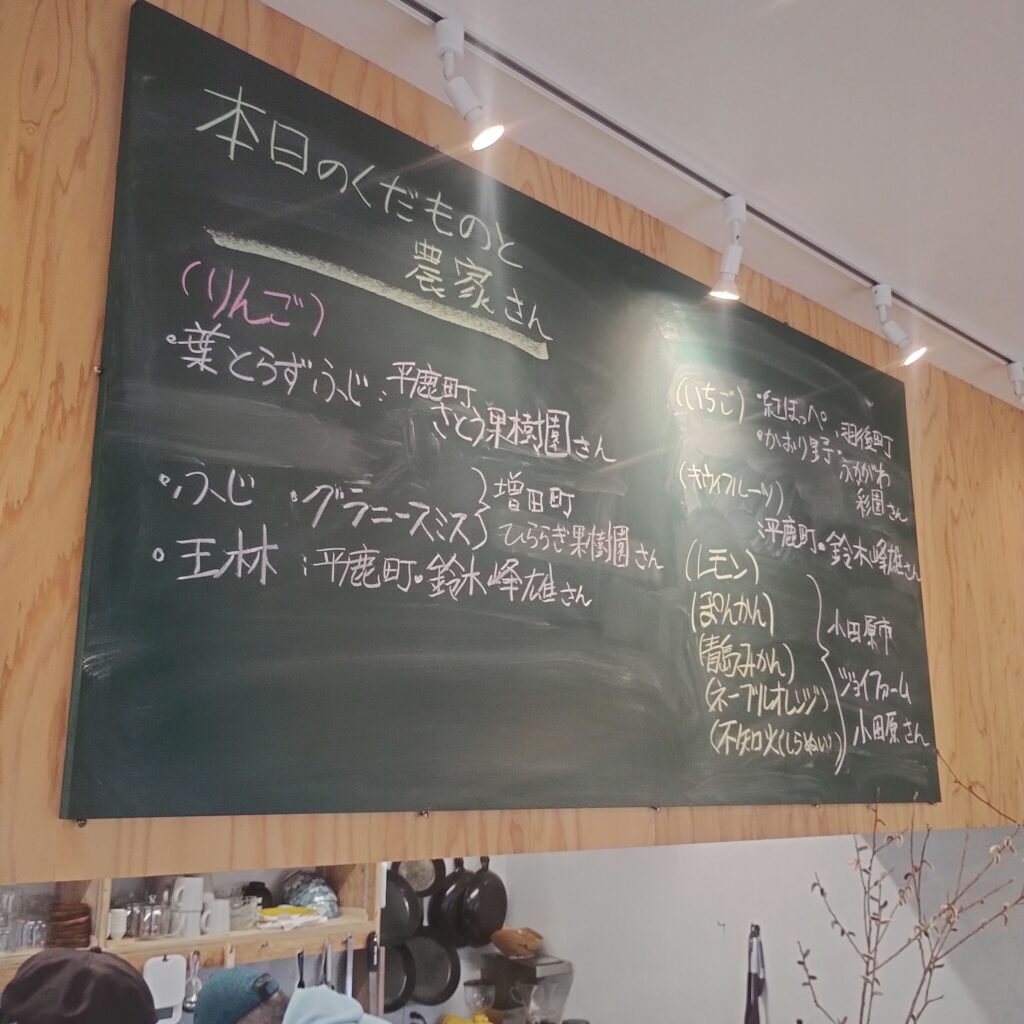 本日のくだものと
農家さん
(りんご)
・葉とらずふじ：平鹿町
さとう果樹園さん
・ふじ ・グラニースミス} 増田町
ひららぎ果樹園さん
・王林：平鹿町・鈴木峰雄さん
(いちご)・紅ほっぺ
・かおり野：羽後町
ふかがわ
彩園さん
(キウイフルーツ)
：平鹿町・鈴木峰雄さん
(レモン)
(ぽんかん)
(青島みかん)
(ネーブルオレンジ)
(不知火(しらぬい))
小田原市
ジョイファーム
小田原さん